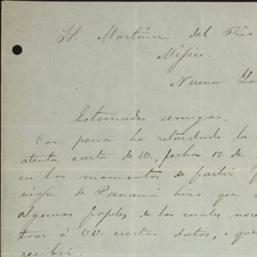 H. Martinez del Rio
Méjico.
Nueva
Estimados amigos.
Con pena he retardado la
atenta carta de W, fecha 12 de
en los momentos de partir
viaje de Panamá hizo que
algunos papeles de los cuales
trar á VV. ciertos datos, que
recibir